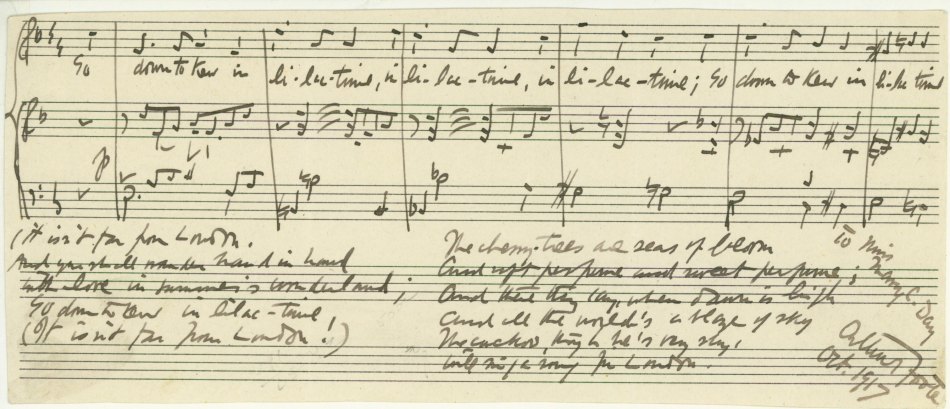 Go down to Kew in li-lac-time, in li-lac-time, in li-lac-time; Go down to Kew in li-lac time
p
(It isn't far from London.
And you shall wander hand in hand
with love in summer's wonderland;
Go down to Kew in lilac-time!
(It isn't far from London!)
The cherry-trees are seas of bloom
and soft perfume and sweet perfume;
And there they say, when dawn is high
and all the world's a blaze of sky
The cuckoo, though he's very shy,
will sing a song for London.
To Miss
Mary C. Day
Arthur Foote
Oct. 1917